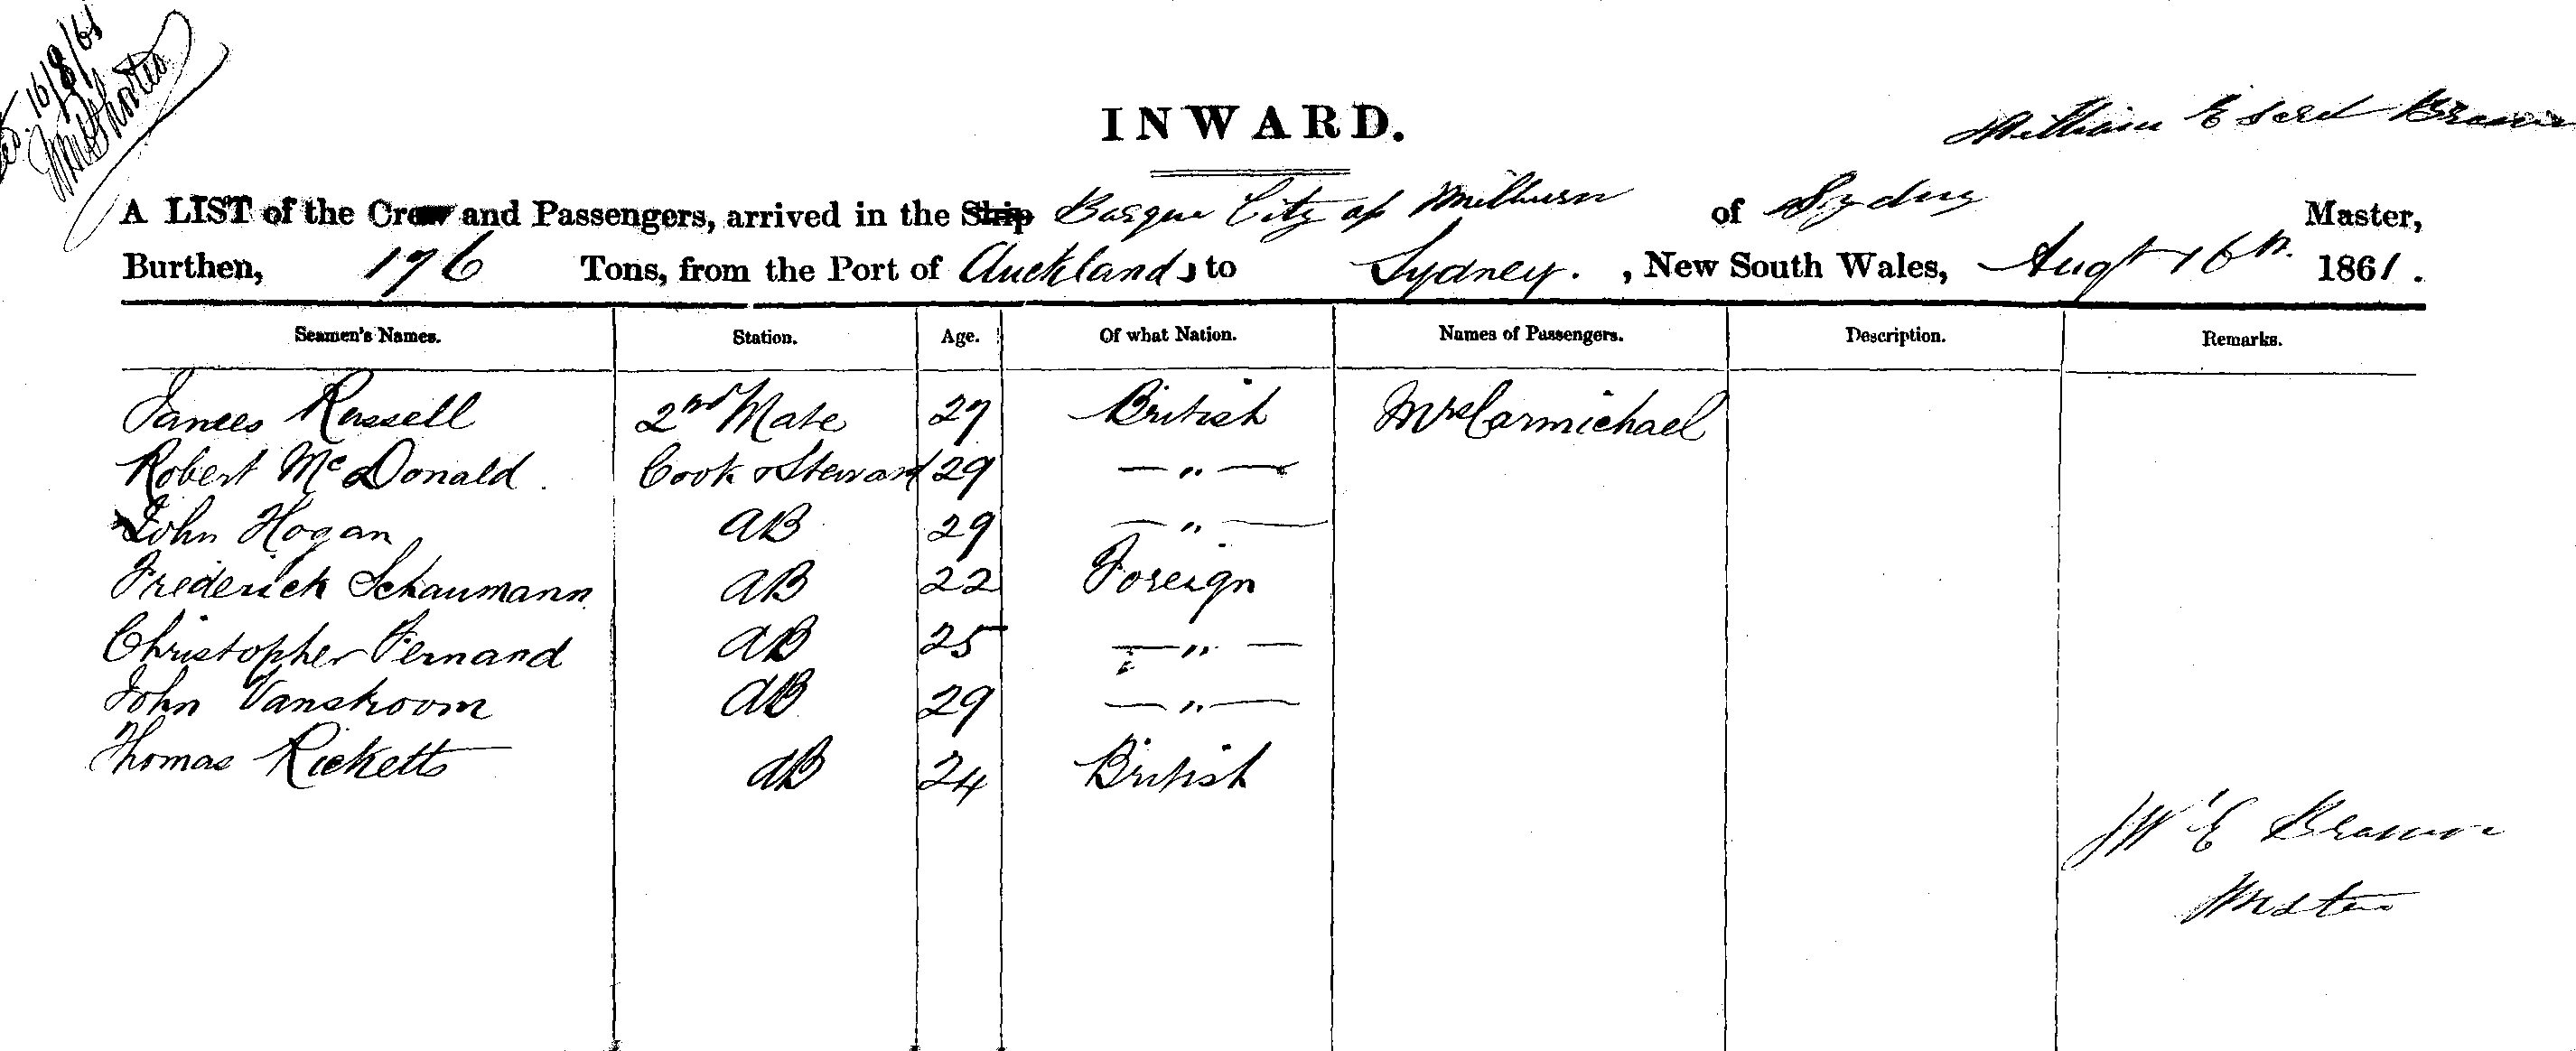 16/8/61
INWARD.
William Brown
A LIST of the Crew and Passengers, arrived in the Ship Barque City of Melburn of Sydney Master,
Burthen, 196 Tons, from the Port of Auckland, to Sydney. , New South Wales, Augt 16th. 1861.
Seamen's Names. Station. Age. Of what Nation. Names of Passengers. Description. Remarks.
James Russell 2nd Mate 27 British Mrs Carmichael
Robert McDonald. Cook & Steward 29 — " —
John Hogan AB 29 — " —
Frederick Schaumann AB 22 Foreign
Christopher Fernand AB 25 — " —
John Vanstroom AB 29 — " —
Thomas Ricketts AB 24 British
W E Brown
Master